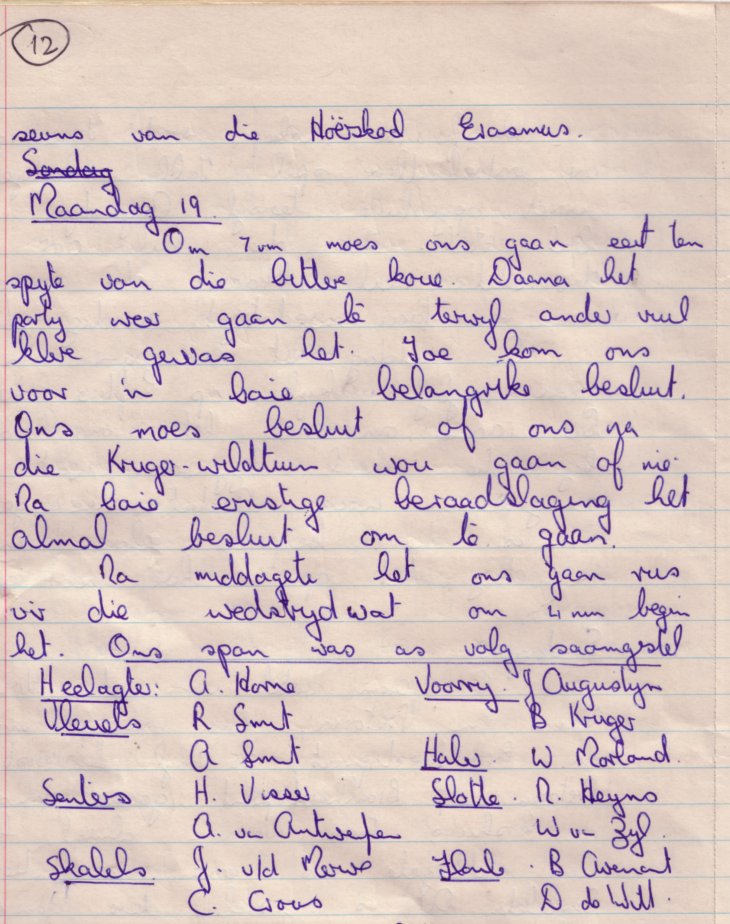 12
seuns van die Hoërskool Erasmus.
Sondag
Maandag 19.
Om 7 vm moes ons gaan eet ten
spyte van die bittere koue. Daarna het
party weer gaan lê terwyl ander vuil
klere gewas het. Toe kom ons
voor 'n baie belangrike besluit.
Ons moes besluit of ons na
die Kruger-wildtuin wou gaan of nie.
Na baie ernstige beraadslaging het
almal besluit om te gaan.
Na middagete het ons gaan rus
vir die wedstryd wat om 4 nm begin
het. Ons span was as volg saamgestel
Heelagter: A. Horne Voorry. J Augustyn
Vleuels R Smut B Kruger
A Smut Haker W Morland.
Senters H. Visser Slotte. N. Heyns
A. van Antwerpen W van Zyl.
Skakels J. v/d Merwe Flanke. B Avenant
C. Crous D de Witt.